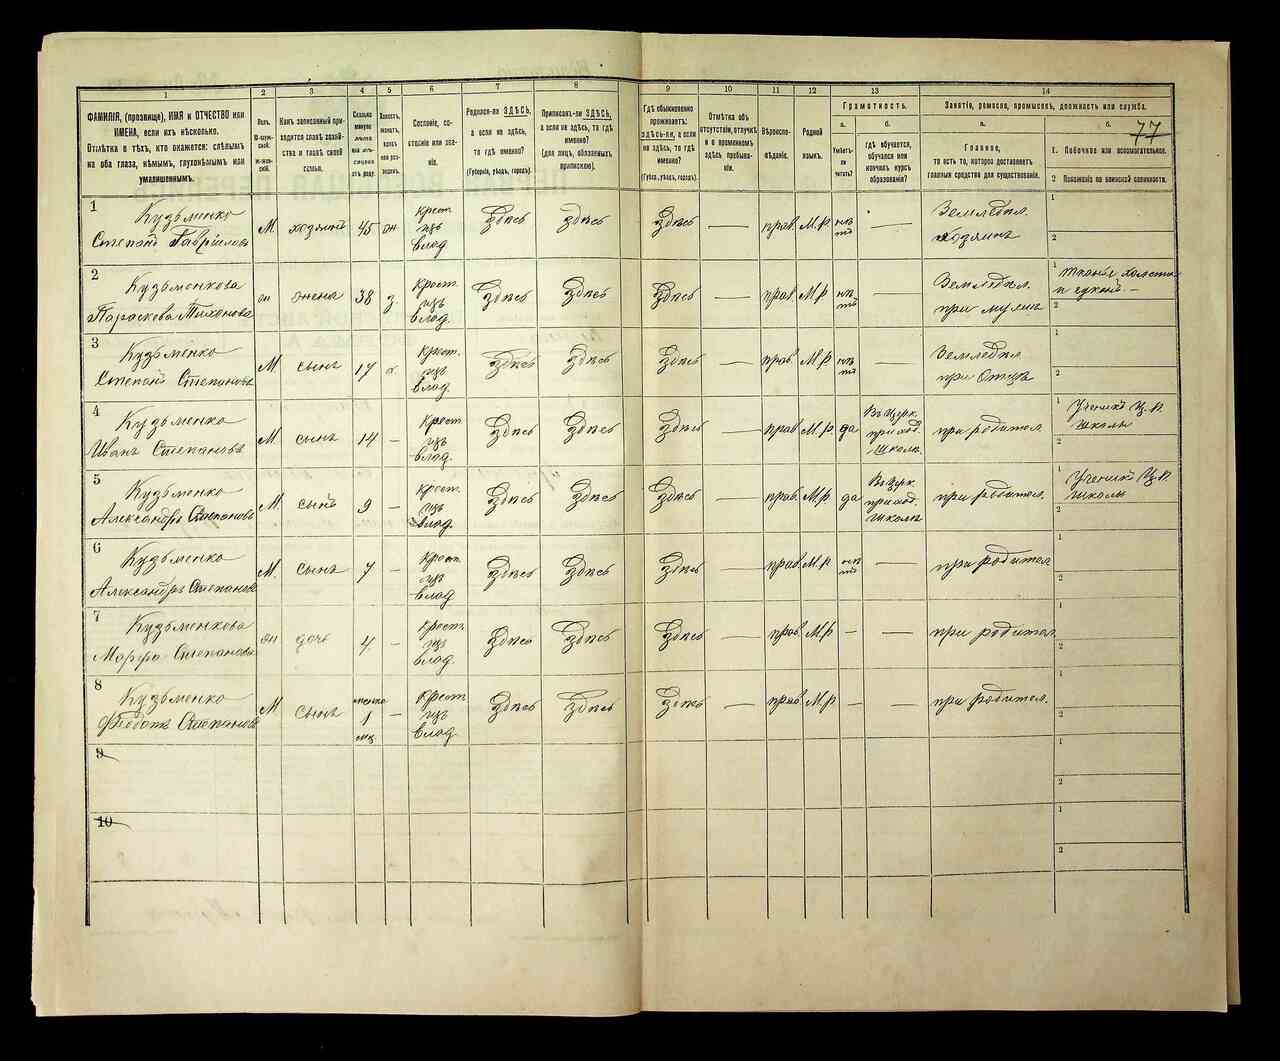 1
2
3
4
5
6
7
8
9
10
11
12
13
14
ФАМИЛІЯ, (прозвище), ИМЯ и ОТЧЕСТВО или
ИМЕНА, если ихъ нѣсколько.
Отмѣтка о тѣхъ, кто окажется: слѣпымъ
на оба глаза, нѣмымъ, глухонѣмымъ или
умалишеннымъ.
Полъ.
Какъ записанный при-
ходится главѣ хозяй-
ства и главѣ своей
семьи.
Сколько
минуло
Сословіе, со-
стояніе или зва-
ніе.
Родился-ли ЗДѢСЬ,
а если не здѣсь,
то гдѣ именно?
(Губернія, уѣздъ, городъ).
Приписанъ-ли ЗДѢСЬ,
а если не здѣсь, то гдѣ
именно?
(для лицъ, обязанныхъ
припискою).
Гдѣ обыкновенно
проживаетъ:
ЗДѢСЬ-ли, а если
не здѣсь, то гдѣ
именно?
(Губер., уѣздъ, городъ).
Отмѣтка объ
отсутствіи, отлучкѣ
и о временномъ
здѣсь пребыва-
ніи.
Вѣроиспо-
вѣданіе.
Родной
языкъ.
Грамотность.
а.
Умѣетъ-
ли
читать?
б.
гдѣ обучается,
обучался или
кончилъ курсъ
образованія?
Занятіе, ремесло, промыселъ, должность или служба.
а.
Главное,
то есть то, которое доставляетъ
главныя средства для существованія.
б.
77
1. Побочное или вспомогательное.
2 Положеніе по воинской повинности.
1
Кузьменко
Степанъ Гавріиловъ
М. хозяинъ 45 он
Крест.
изъ
влад
здѣсь здѣсь здѣсь — прав. М.Р. нѣтъ —
Земледѣл.
Хозяинъ
1
2
2
Кузьменкова
Параскева Тихонова
жена 38 з.
Крест.
изъ
влад.
здѣсь здѣсь здѣсь — прав. М.Р. нѣтъ —
Земледѣл.
при мужѣ
1
тканье холста
и сукон. —
2
3
Кузьменко
Степанъ Степановъ
М. сынъ 17
Крест.
изъ
влад.
здѣсь здѣсь здѣсь — прав. М.Р. нѣтъ —
Земледѣл
при Отцѣ
1
2
4
Кузьменко
Иванъ Степановъ
М. сынъ 14 —
Крест.
изъ
влад.
здѣсь здѣсь здѣсь — прав. М.Р. да
Въ Церк.
приход.
школѣ.
при родител.
1
Ученикъ Ц. П.
школы
2
5
Кузьменко
Александръ Степановъ
М. сынъ 9 —
Крест.
изъ
влад.
здѣсь здѣсь здѣсь — прав. М.Р. да
Въ Церк.
приход.
школѣ
при родител.
1
Ученикъ Ц. П.
школы
2
6
Кузьменко
Александръ Степановъ
М. сынъ 7 —
Крест.
изъ
влад
здѣсь здѣсь здѣсь — прав. М.Р. нѣтъ —
при родител
1
2
7
Кузьменкова
Марфа Степанова
дочь 4 —
Крест.
изъ
влад.
здѣсь здѣсь здѣсь — прав. М.Р. — —
при родител.
1
2
8
Кузьменко
Ѳедотъ Степановъ
М. сынъ менѣе 1 —
Крест.
изъ
влад
здѣсь здѣсь здѣсь — прав. М.Р. — —
при родител.
1
2
9
1
2
10
1
2